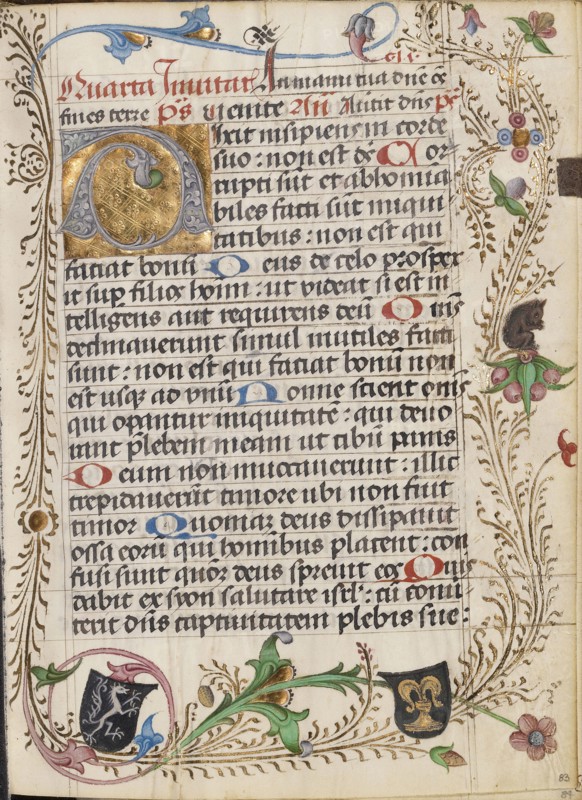 Quarta Inuitat In manu tua dñe oẽ
fines terre Ps Uenite Añ Auertit dñs ps
Dixit insipiens in corde
suo : non est dẽ Cor
rupti sũt et abhomina
biles facti sũt iniqui
tatibus : non est qui
faciat bonũ Deus de celo prospex
it sup filios hoĩm : ut videat si est in
telligens aut requirens deũ Om̃s
declinauerunt simul inutiles facti
sunt : non est qui faciat bonũ non
est usq; ad vnũ Nonne scient om̃s
qui operantur iniquitatẽ : qui deuo
rant plebem meam ut cibũ panis
Deum non inuocauerunt : illic
trepidauerũt timore ubi non fuit
timor Quoniaʒ deus dissipauit
ossa eorũ qui hominibus placent : con
fusi sunt quõr deus spreuit eos Quis
dabit ex syon salutare isrl' : cũ conũ
terit dñs captiuitatem plebis sue :
83